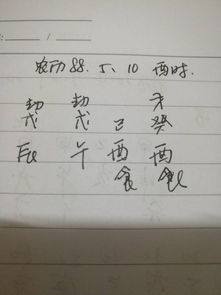 农历88.5.10 酉时.
劫 劫 才
戊 戊 己 癸
辰 午 酉 酉
食 食